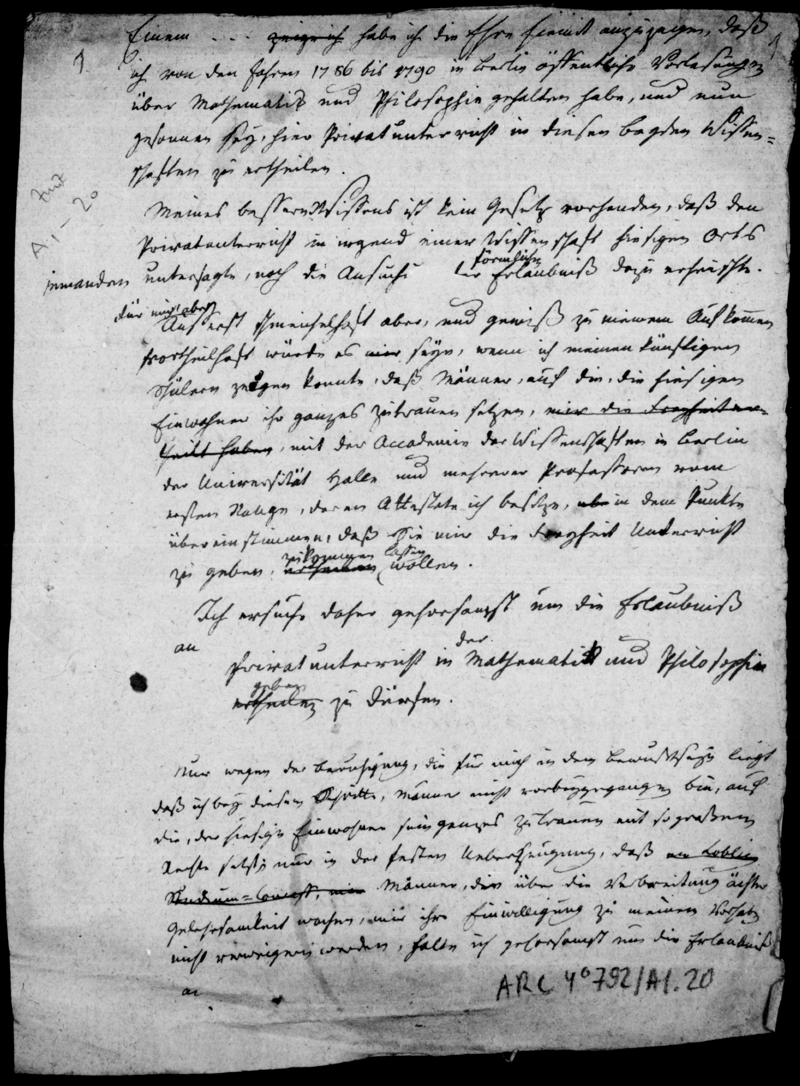 Einem . . . habe ich die Ehre hiemit anzuzeigen, daß
ich von den Jahren 1786 bis 1790 in Berlin öffentliche Vorlesungen
über Mathematik und Philosophie gehalten habe, und nun
gesonnen sey, hier Privatunterricht in diesen beyden Wissen=
schaften zu ertheilen.
Meines bessern Wissens ist kein Gesetz vorhanden, daß den
Privatunterricht in irgend einer Wissenschaft hiesigen Orts
förmliche
jemanden untersagte, noch die Ansuche der Erlaubniß dazu erheischte.
Für mich aber
Äusserst schmeichelhaft aber, und gewiß zu meinem Aufkommen
vortheilhaft würde es mir seyn, wenn ich meinen künftigen
Schülern zeigen konnte, daß Männer, auf die, die hiesigen
Einwohner ihr ganzes Zutrauen setzen, mir die Freyheit er-
theilt haben, mit der Accademie der Wissenschaften in Berlin
der Universität Halle und mehrerer Professoren vom
ersten Range, deren Attestate ich besitze, in dem Punkte
übereinstimmen, daß Sie mir die Freyheit Unterricht
zukommen lassen
zu geben, ertheilen wollen.
Ich ersuche daher gehorsamst um die Erlaubniß
an
der
Privatunterricht in Mathematik und Philosophie
geben
ertheilen zu dürfen.
Nur wegen der Beruhigung, die für mich in dem Bewußtseyn liegt
daß ich bey diesem Schritte, Männer nicht vorbeygegangen bin, auf
die, der hiesige Einwohner sein ganzes Zutrauen mit so großem
Rechte setzt; nur in der festen Ueberzeugung, daß ein Löblich
Männer, die über die Verbreitung ächter
Gelehrsamkeit wachen, mir ihre Einwilligung zu meinem Vorsatz
nicht verweigern werden, halte ich gehorsamst um die Erlaubniß
an
ARC 4° 792/A1.20
A1-20
1
1